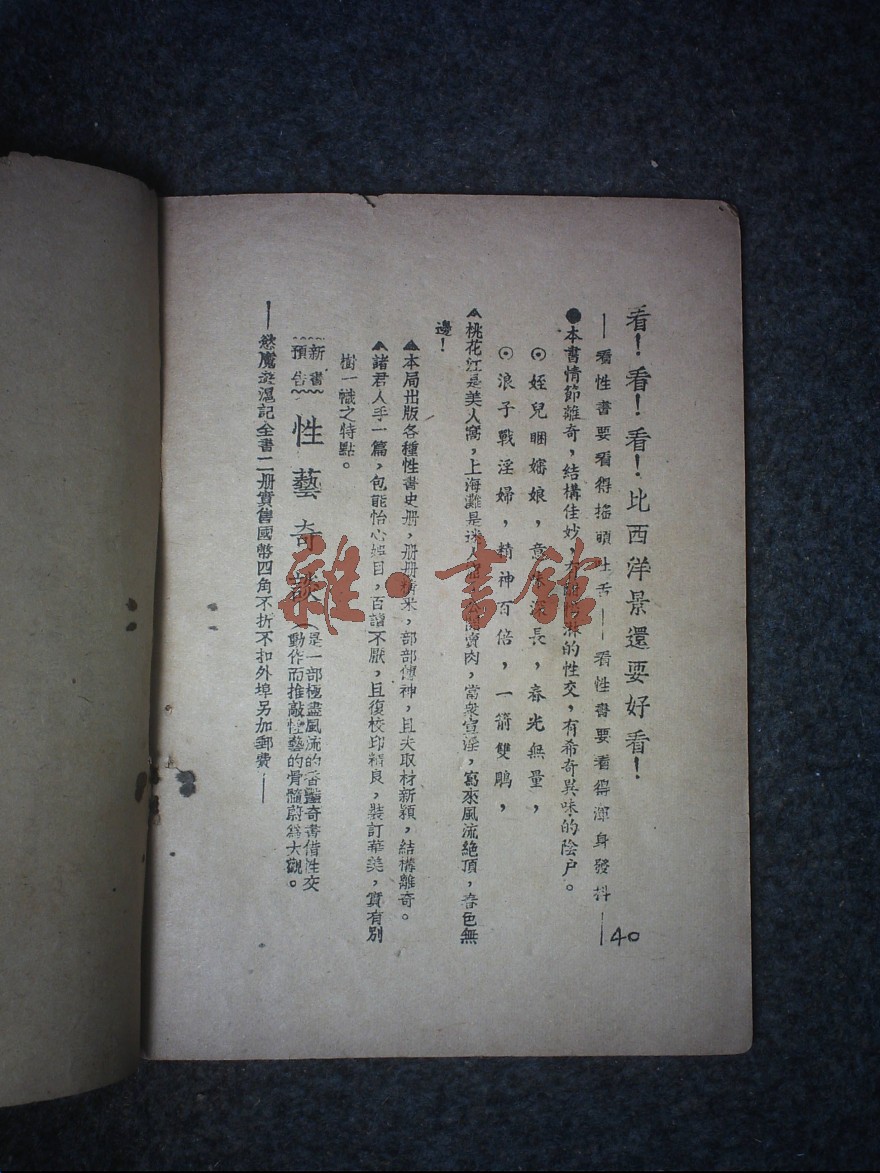 看！看！看！比西洋景還要好看！
——看性書要看得搖頭吐舌——看性書要看得渾身發抖——
40
●本書情節離奇，結構佳妙，有的性交，有希奇異味的陰户。
⊙姪兒睏嬸娘，意味深長，春光無量，
⊙浪子戰淫婦，精神百倍，一箭雙鵰，
▲桃花江是美人窩，上海灘是迷人賣肉，當衆宣淫，寫來風流絕頂，春色無
邊！
▲本局出版各種性書史册，册册部部傳神，且夫取材新穎，結構離奇。
▲諸君人手一篇，包能怡心娛目，百讀不厭，且復校印精良，裝訂華美，實有別
樹一幟之特點。
新書
預告
性藝奇談
（是一部極盡風流的香艷奇書借性交
動作而推敲性藝的骨髓蔚爲大觀。
——慾魔遊滬記全書二册實售國幣四角不折不扣外埠另加郵費——
雜·書館